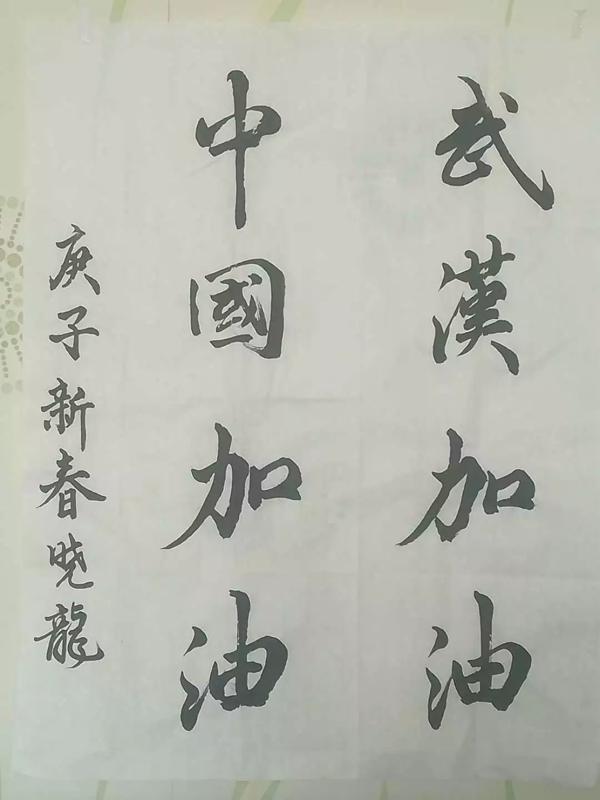 武漢加油
中國加油
庚子新春曉龍